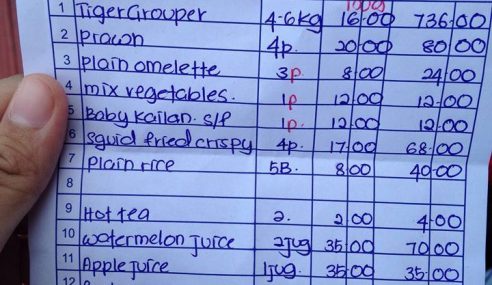 100g
1 Tiger Grouper 4.6kg 16.00 736.00
2 Prawn 4p. 20.00 80.00
3 Plain omelette 3p. 8.00 24.00
4 mix vegetables. 1p 12.00 12.00
5 Baby Kailan. s/f 1p. 12.00 12.00
6 Squid fried crispy 4p. 17.00 68.00
7 Plain rice 5B. 8.00 40.00
8
9 Hot tea 2. 2.00 4.00
10 Watermelon Juice 2jug 35.00 70.00
11 Apple Juice 1jug. 35.00 35.00
12